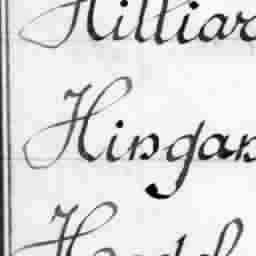 Hilliar
Hingan